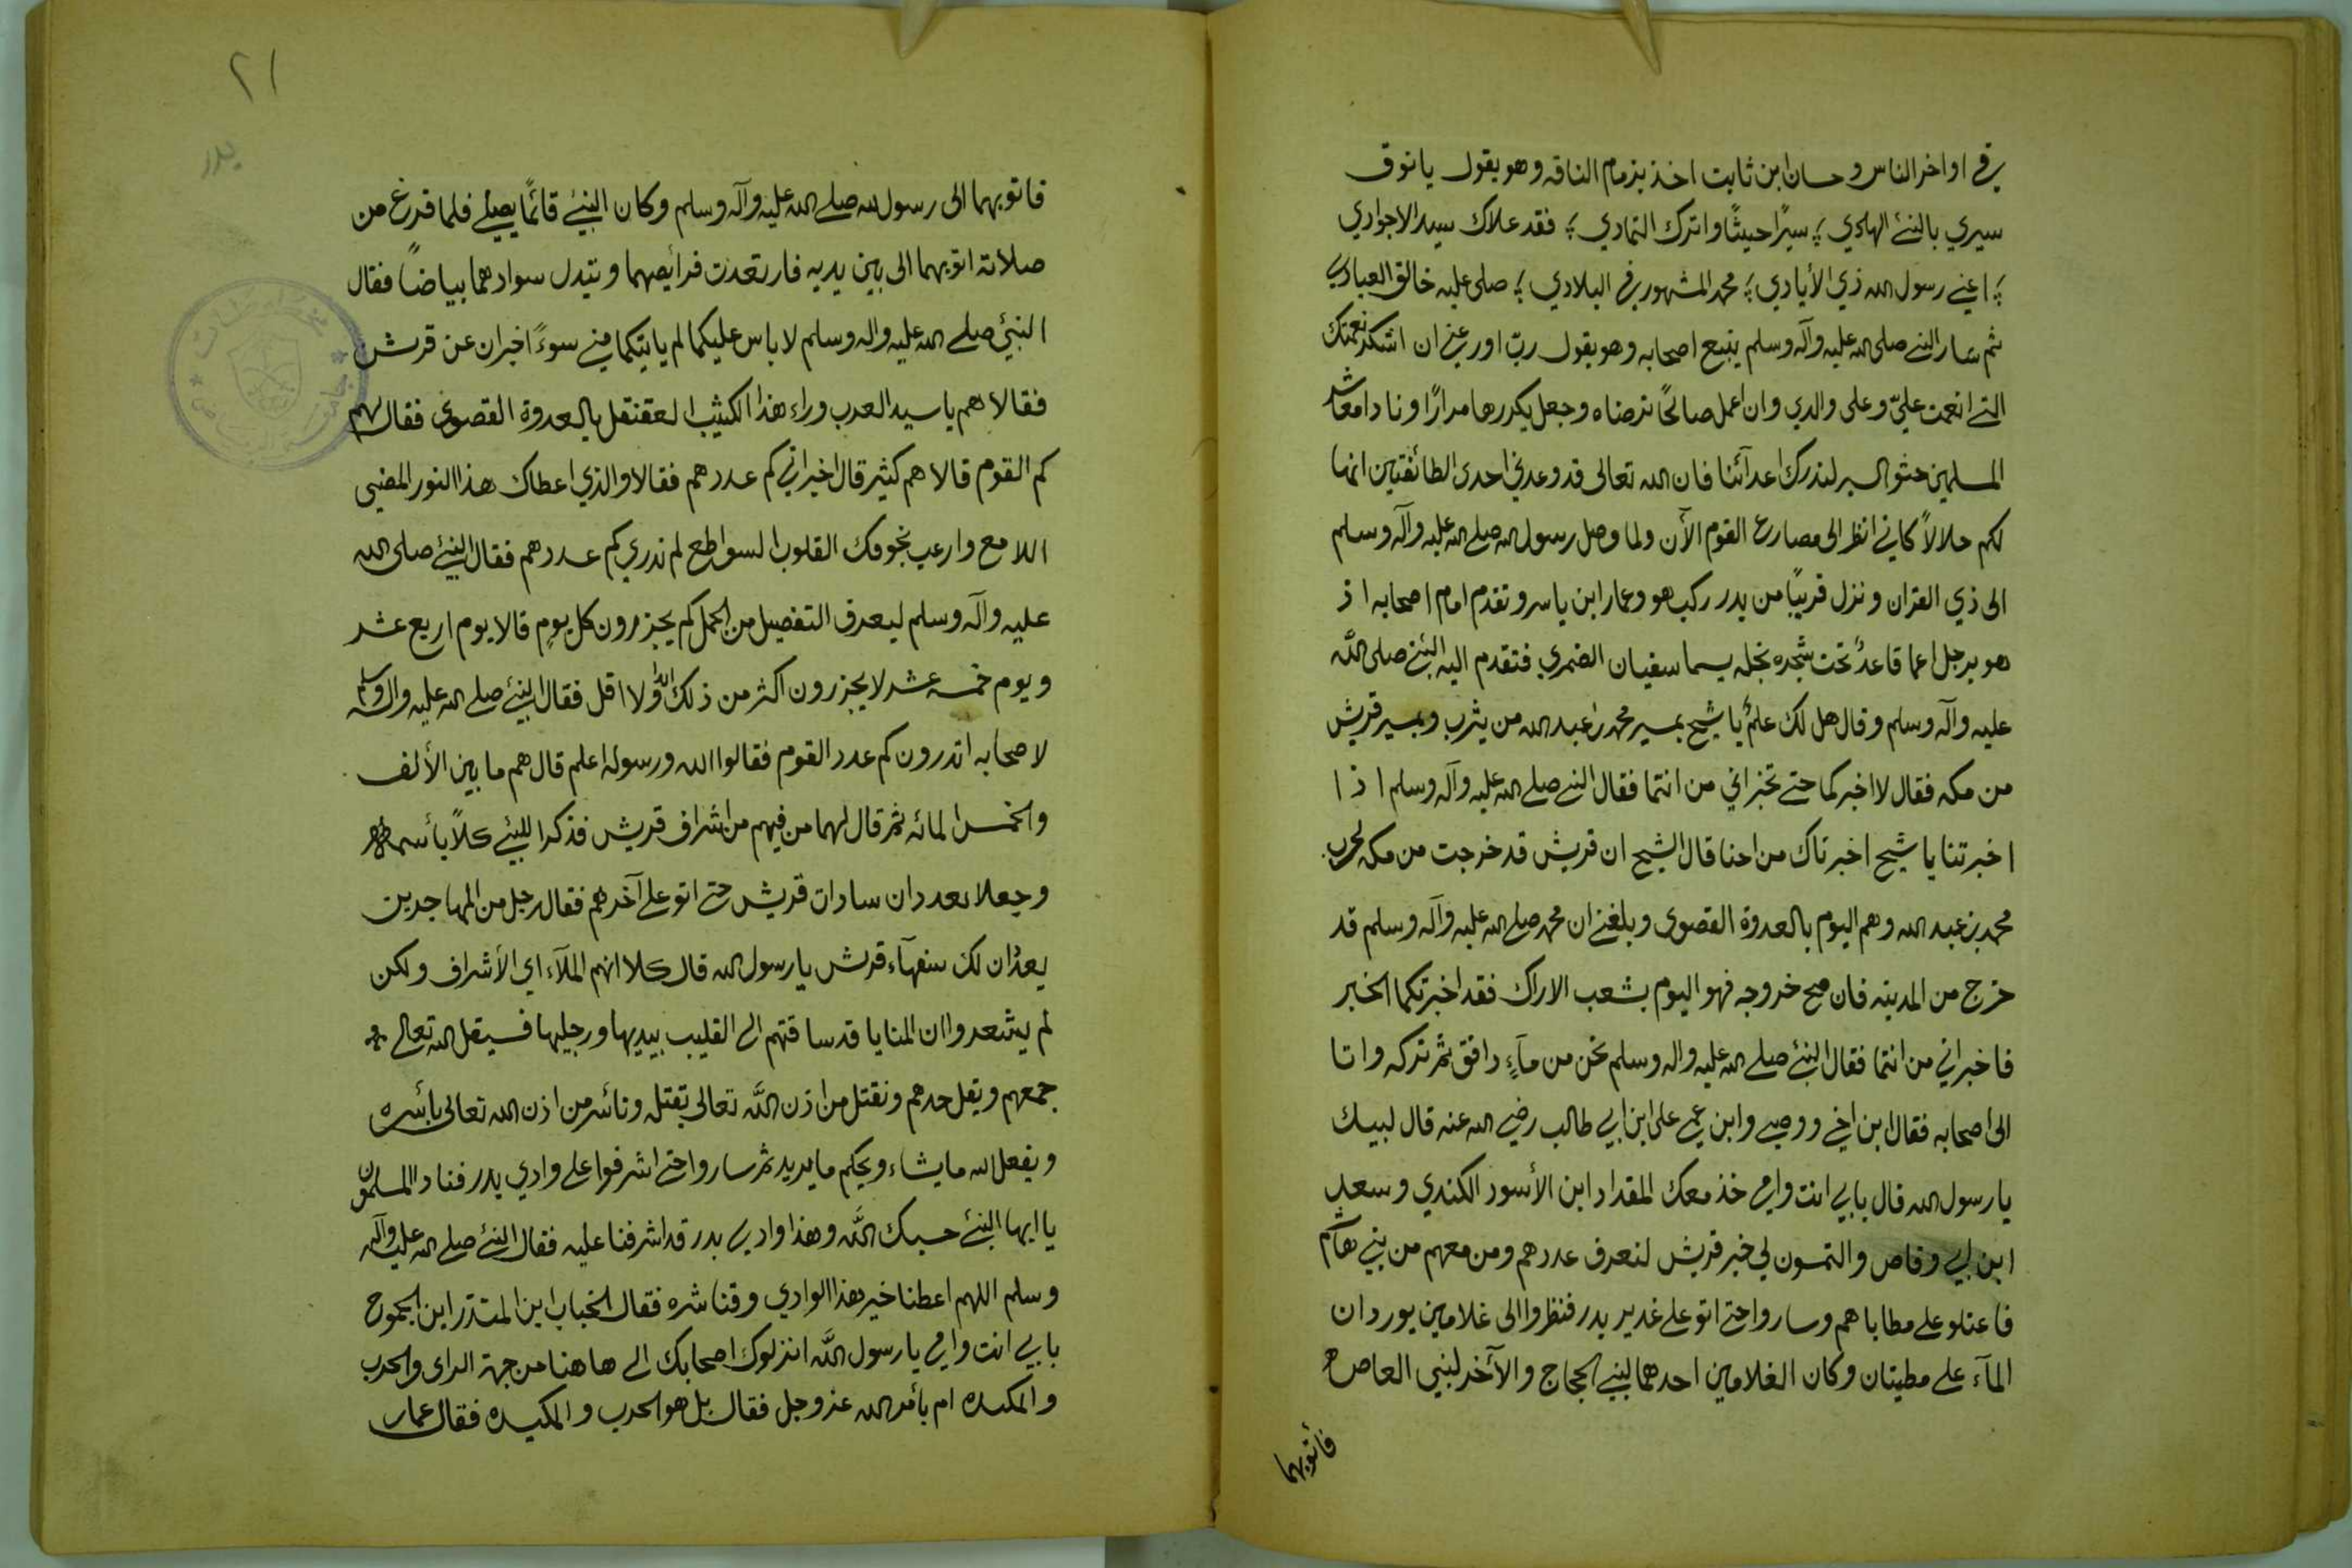 في اواخر الناس وحسان ابن ثابت اخذ بزمام الناقه وهو يقول يانوق
سيري بالنبي الهادي ؛ سيرًا حيثًا واترك التمادي ؛ فقد علاك سيد الاجوادي
؛ اعني رسول الله ذي الأيادي ؛ محمد المشهور في البلادي ؛ صلى عليه خالق العبادي
ثم سار النبي صلى الله عليه وآله وسلم يتبع اصحابه وهو يقول ربّ اورعني ان اشكر نعمتك
التي انعمت عليّ وعلى والدي وان اعمل صالحًا ترضاه وجعل يكررها مرارًا ونادا معاشر
المسلمين حثو السير لندرك اعدآئنا فان الله تعالى قد وعدني احدى الطائفتين انها
لكم حلالاً كاني انظر الى مصارع القوم الآن ولما وصل رسول الله صلى الله عليه وآله وسلم
الى ذي القران ونزل قريبًا من بدر ركب هو وعمار ابن ياسر وتقدم امام اصحابه اذ
هو برجل اعما قاعدٌ تحت شجره نخله يسما سفيان الضمري فتقدم اليه النبي صلى اللّه
عليه وآله وسلم وقال هل لك علمٌ يا شيخ بمسير محمد بن عبد الله من يثرب وبمسير قريش
من مكه فقال لا اخبركما حتى تخبراني من انتما فقال النبي صلى الله عليه وآله وسلم اذا
اخبرتنا يا شيخ اخبرناك من احنا قال الشيخ ان قريش قد خرجت من مكه لحرب
محمد بن عبد الله وهم اليوم بالعدوة القصوى وبلغني ان محمد صلى الله عليه وآله وسلم قد
خرج من المدينه فان صح خروجه فهو اليوم بشعب الاراك فقد اخبرتكما الخبر
فاخبراني من انتما فقال النبي صلى الله عليه واله وسلم نحن من مآءٍ دافق ثم تركه واتا
الى اصحابه فقال ابن اخي ووصيي وابن عمي علي ابن ابي طالب رضي الله عنه قال لبيك
يا رسول الله قال بابي انت وامي خذ معك المقداد ابن الأسود الكندي وسعد
ابن ابي وقاص والتمسون لي خبر قريش لنعرف عددهم ومن معهم من بني هاشم
فاعتلو على مطاياهم وساروا حتى اتو على غدير بدر فنظروا الى غلامين يوردان
المآء على مطيتان وكان الغلامين احدهما لبني الحجاج والآخر لبني العاص
فأتوبهما
٢١
بدر
فاتوبهما الى رسول الله صلى الله عليه وآله وسلم وكان النبي قائمًا يصلي فلما فرغ من
صلاته اتوبهما الى بين يديه فارتعدت فرائصهما وتبدل سوادهما بياضاً فقال
النبي صلى الله عليه واله وسلم لا باس عليكما لم ياتيكما مني سوءً اخبران عن قريش
فقالا هم يا سيد العرب وراء هذا الكثيب العقنقل بالعدوة القصوى فقال لهم
كم القوم قالا هم كثير قال اخبراني كم عددهم فقالا والذي اعطاك هذا النور المضيى
اللامع وارعب بخوفك القلوب السواطع لم ندري كم عددهم فقال النبي صلى الله
عليه وآله وسلم ليعرف التفصيل من الجمل كم يجزرون كل يومٍ قالا يوم اربع عشر
ويوم خمسه عشر لا يجزرون اكثر من ذلك ولا اقل فقال النبي صلى الله عليه واله وسلم
لاصحابه اتدرون كم عدد القوم فقالوا الله ورسوله اعلم قال هم ما بين الألف
والخمس المائه ثم قال لهما من فيهم من اشراف قريش فذكرا للنبي كلاً بأسمه
وجعلا يعددان سادات قريش حتى اتو على آخرهم فقال رجل من المهاجرين
يعدّان لك سفهآء قريش يا رسول الله قال كلا انهم الملآء اي الأشراف ولكن
لم يشعروا ان المنايا قد ساقتهم الى القليب بيديها ورجليها فسيقل الله تعالى
جمعهم ويفل حدهم ونقتل من اذن اللّه تعالى بقتله ونأسر من اذن الله تعالى بأسره
ويفعل الله ما يشاء ويحكم ما يريد ثم ساروا حتى اشرفوا على وادي بدر فناد المسلمون
يا ايها النبي حسبك اللّه وهذا وادي بدر قد اشرفنا عليه فقال النبي صلى الله عليه وآله
وسلم اللهم اعطنا خير هذا الوادي وقنا شره فقال الخباب ابن المنذر ابن الجموح
بابي انت وامي يا رسول اللّه انزلوك اصحابك الى هاهنا من جهة الراى والحرب
والمكيده ام بأمر الله عز وجل فقال بل هو الحرب والمكيده فقال عمار